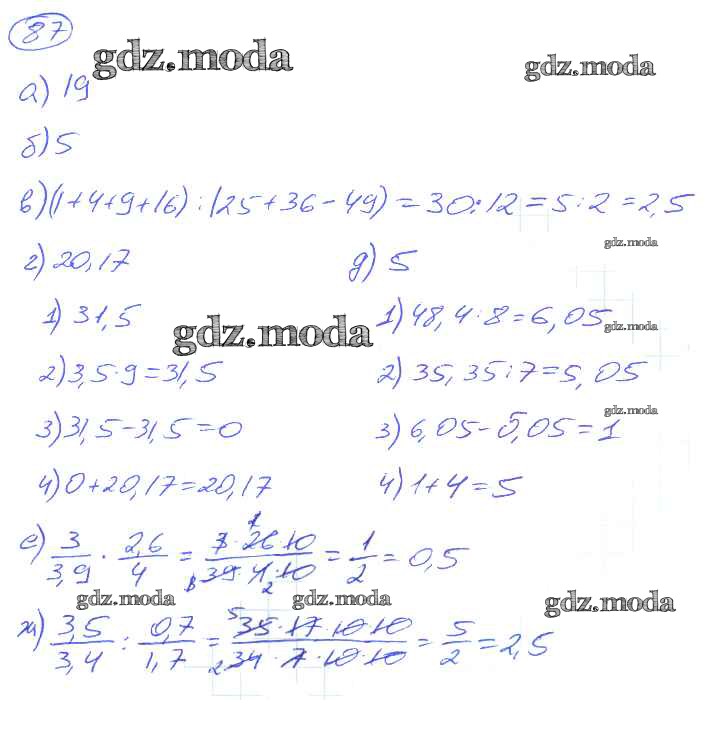 87
gdz.moda gdz.moda
а) 19
б) 5
в) (1+4+9+16) : (25+36-49) = 30:12 = 5:2 = 2,5
gdz.moda
г) 20,17 д) 5
1) 31,5 1) 48,4:8=6,05 gdz.moda
gdz.moda
2) 3,5·9=31,5 2) 35,35:7=5,05
gdz.moda
3) 31,5-31,5=0 3) 6,05-5,05=1
4) 0+20,17=20,17 4) 1+4=5
е) 3/3,9 · 2,6/4 = 3·26·10/39·4·10 = 1/2 = 0,5
gdz.moda gdz.moda gdz.moda
ж) 3,5/3,4 : 0,7/1,7 = 35·17·10·10/34·7·10·10 = 5/2 = 2,5